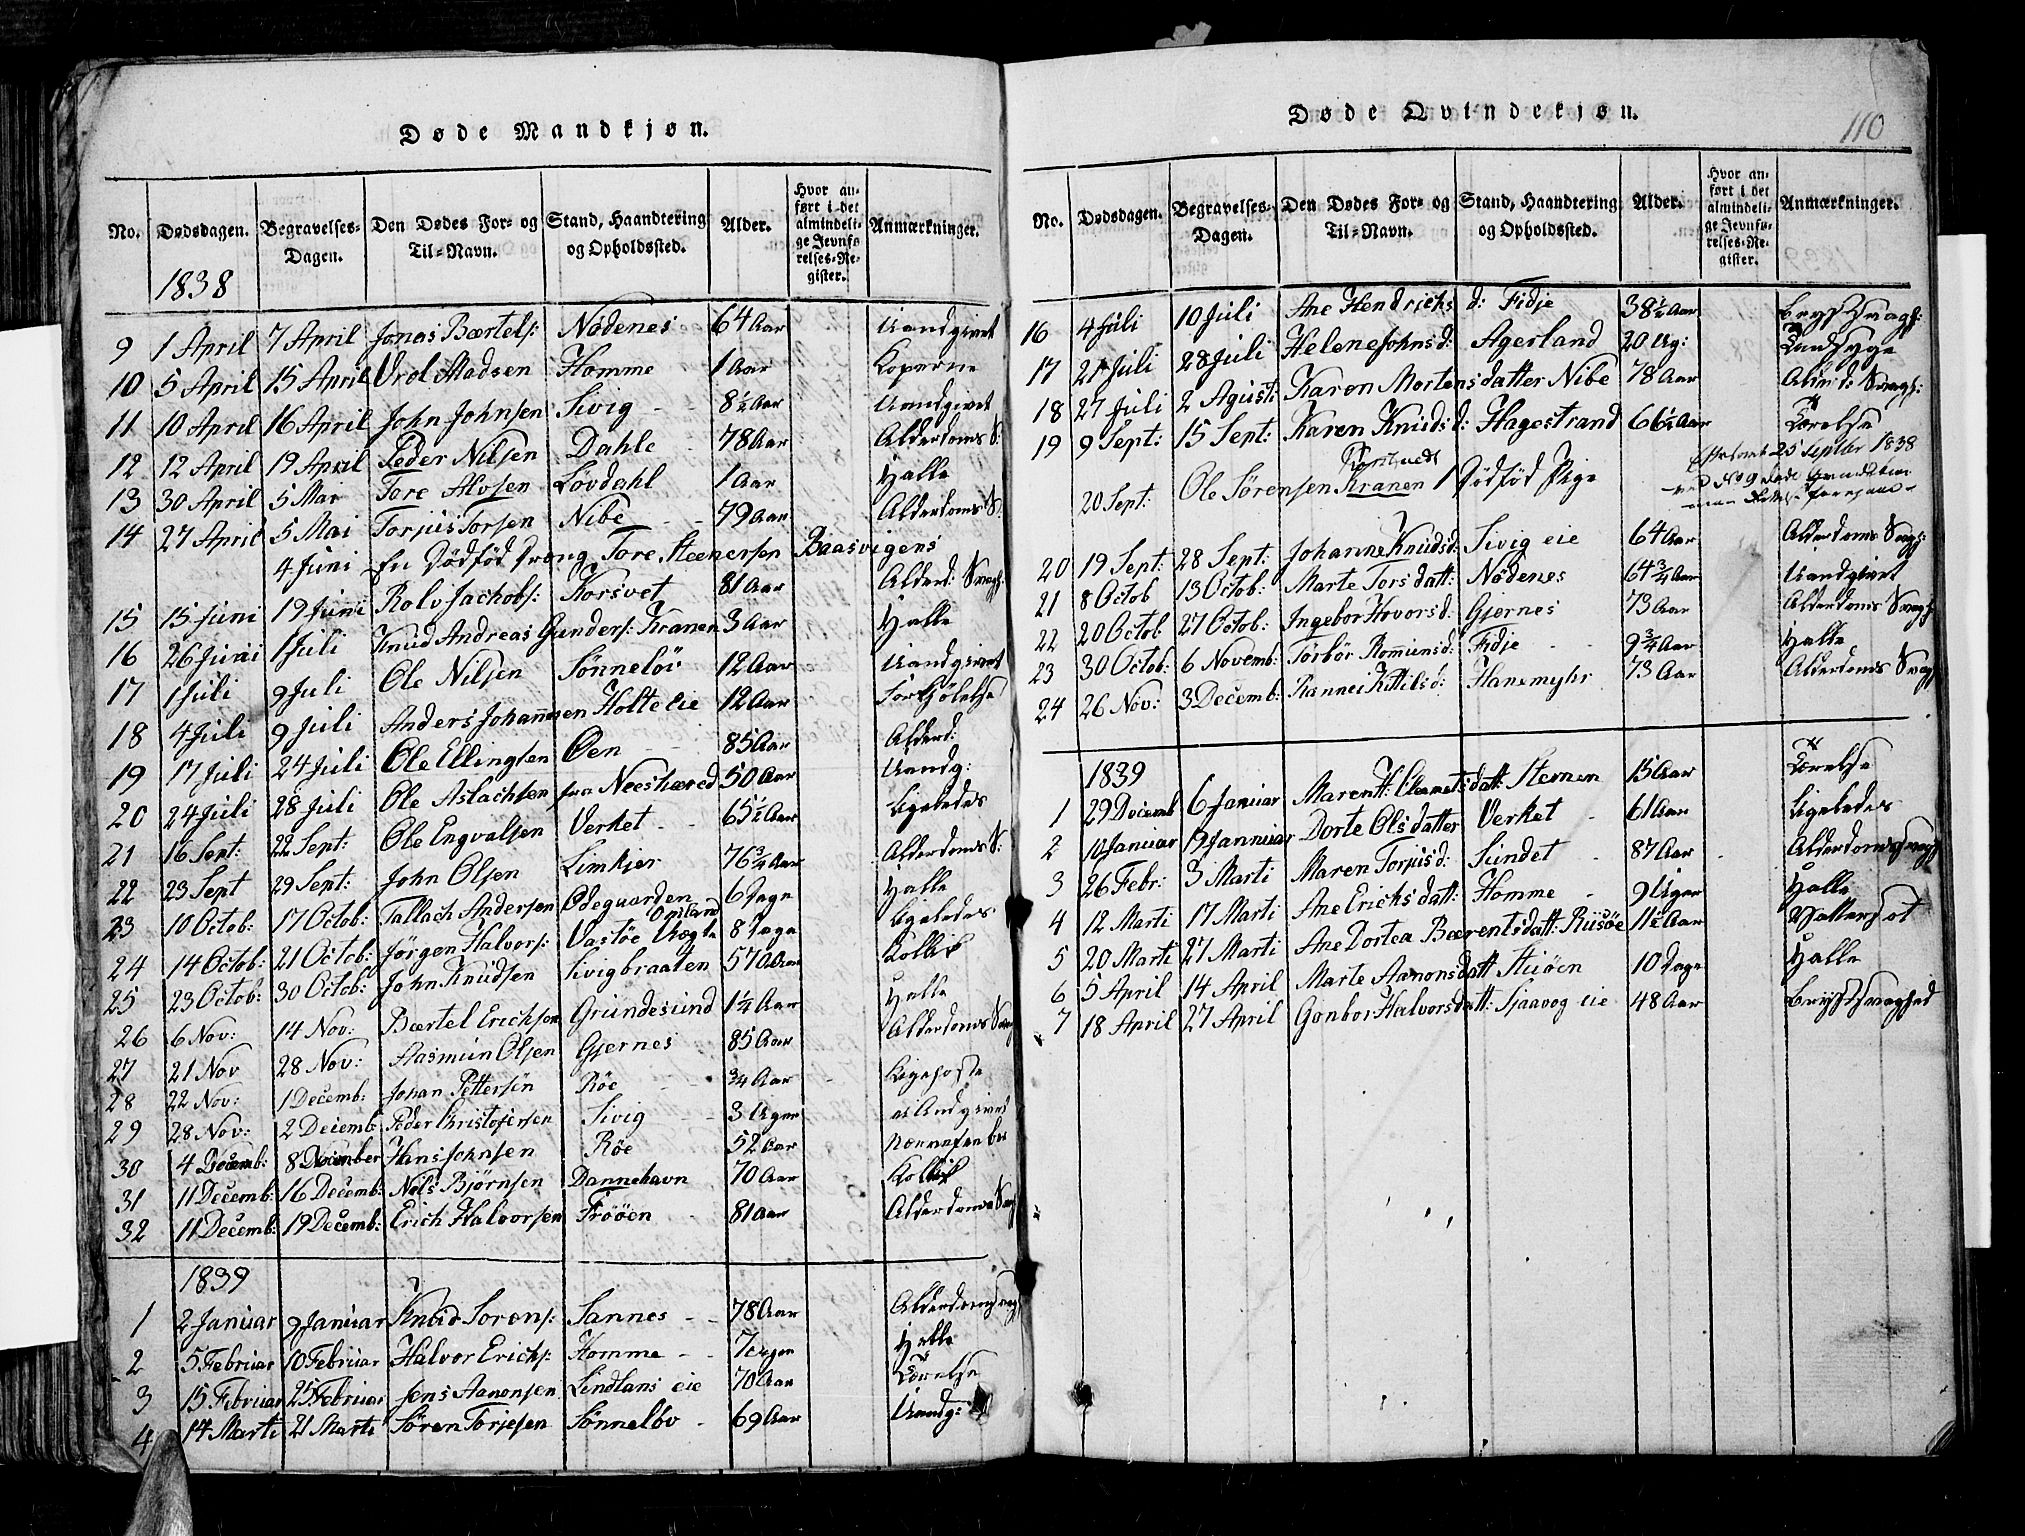 Døde Mandkjøn.
No. Dødsdagen. Begravelses-Dagen. Den Dødes For- og Til-Navn. Stand, Haandtering og Opholdssted. Alder. Hvor anført i det almindelige Jevnførelses-Register. Anmærkninger.
1838
9 1 April 7 April Jonas Bærtels: Nødenes 64 Aar Uangivet
10 5 April 15 April Urol Madsen Homme 1 Aar Koperne
11 10 April 16 April John Johnsen Sivig 8½ Aar Uangivet
12 12 April 19 April Peder Nilsen Dahle 78 Aar Alderdoms S:
13 30 April 5 Mai Tore Alvsen Løvdahl 1 Aar Halle
14 27 April 5 Mai Torjus Torsen Nibe 79 Aar Alderdoms S:
4 Juni En Dødfød Dreng Tore Steenersen Baasvigens
15 15 Juni 19 Juni Rolv Jachobs: Korsvet 81 Aar Alderd: Svagh:
16 26 Juni 1 Juli Knud Andreas Gunders: Kranen 3 Aar Halle
17 1 Juli 9 Juli Ole Nilsen Sønneløv 12 Aar Uangivet
18 4 Juli 9 Juli Anders Johannsen Holte eie 12 Aar Forkjølelse
19 17 Juli 24 Juli Ole Ellingsen Øen 85 Aar Alderd:
20 24 Juli 28 Juli Ole Aslachsen fra Neeshæred 50 Aar Uandg:
21 16 Sept: 22 Sept: Ole Engvalsen Verket 65½ Aar Ligeledes
22 23 Sept 29 Sept: John Olsen Limkjer 76¾ Aar Alderdoms S:
23 10 Octob: 17 Octob: Tallach Andersen Ødeguarden 6 Dage Halle
24 14 Octob: 21 Octob: Jørgen Halvors: Vastøe 8 Dage Ligeledes
25 23 Octob: 30 Octob: John Knudsen Sivigbraaten 57 Aar Kollik
26 6 Nov: 14 Nov: Bærtel Erichsen Grundesund 1¼ Aar Halle
27 21 Nov 28 Nov: Aasmun Olsen Gjernes 85 Aar Alderdoms Svag
28 22 Nov: 1 Decemb: Johan Pettersen Røe ¾ Aar Kigehoste
29 28 Nov: 2 Decemb Peder Christofersen Sivig 3 Uger Uandgivet
30 4 Decemb: 8 December Hans Johnsen Røe 52 Aar
31 11 Decemb: 16 Decemb: Nels Bjørnsen Dannehavn 70 Aar Kollik
32 11 Decemb: 19 Decemb: Erich Halvorsen Frøøen 81 Aar Alderdoms Svag
1839
1 2 Januar 9 Januar Knud Sorens: Sannes 78 Aar Alderdomssvag
2 5 Februar 10 Februar Halvor Erichs: Homme 7 Uger Halle
3 15 Februar 25 Februar Jens Aanonsen Lindlans eie 70 Aar Tærelse
4 14 Marti 21 Marti Søren Torjesen Sønneløv 69 Aar Uandg:
Døde Qvindekjøn.
110
No. Dødsdagen. Begravelses-Dagen. Den Dødes For- og Til-Navn. Stand, Haandtering og Opholdssted. Alder. Hvor anført i det almindelige Jevnførelses-Register. Anmærkninger.
16 4 Juli 10 Juli Ane Hendrichs d: Fidje 38½ Aar Brystsvagh:
17 21 Juli 28 Juli Helene Johnsd: Agerland 20 Ug:
18 27 Juli 2 Agusti Karen Mortensdatter Nibe 78 Aar Alder d: Svagh:
19 9 Sept: 15 Sept: Karen Knudsd: Hagestrand 66½ Aar Tærelse
20 Sept: Ole Sørensen Kranen 1 Dødfød Pige 25 Septbr 1838
20 19 Sept: 28 Sept: Johanne Knudsd: Sivig eie 64 Aar Alderdoms Svagh:
21 8 Octob 13 Octob: Marte Torsdatt: Nødenes 64¾ Aar Uandgivet
22 20 Octob 27 Octob: Ingebor Hovorsd: Gjernes 73 Aar Alderdoms Svagh:
23 30 Octob: 6 Novemb: Torbor Romunsd: Fidje 9¾ Aar Halle
24 26 Nov: 3 Decemb: Rannei Kittilsd: Hanemyhr 73 Aar Alderdoms Svagh
1839
1 29 Decemb 6 Januar Maren H: Clemetsdatt: Stemen 15 Aar Tærelse
2 10 Januar 19 Jannuar Dorte Olsdatter Verket 61 Aar Ligeledes
3 26 Febr: 3 Marti Maren Torjusd: Sundet 87 Aar Alderdomssvagh
4 12 Marti 17 Marti Ane Erichsdatt: Homme 9 Uger Halle
5 20 Marti 27 Marti Ane Dortea Bærentsdatt: Riisøe 11½ Aar Vattersot
6 5 April 14 April Marte Aanonsdatt Stuøen 10 Dage Halle
7 18 April 27 April Gonbor Halvorsdatt: Sjaavog eie 48 Aar Brystsvaghed